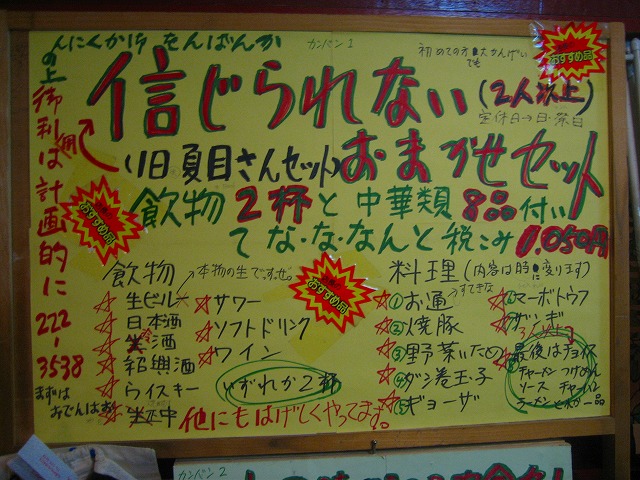 カンバン1
初めての方大かんげい
でも
おすすめ品
信じられない
(2人以上)
定休日→日・祭日
(旧夏目さんセット)
おまかせセット
飲物2杯と中華類8品付い
てな・な・なんと税こみ1,050円
おすすめ品
の上
御利用は計画的に
222-
3538
まずは
飲物
本物の生です。ぜ。
生ビール
日本酒
焼酒
紹興酒
ウイスキー
サワー
ソフトドリンク
ワイン
いずれか2杯
他にもはげしくやってます。
おすすめ品
料理(内容は時に変ります)
①お通
すてきな
②焼豚
③野菜いため
④ダシ巻玉子
⑤ギョーザ
マーボトウフ
最後は
チャーメン つけめん
ソース チャーハン
ラーメン 一品
カンバン2